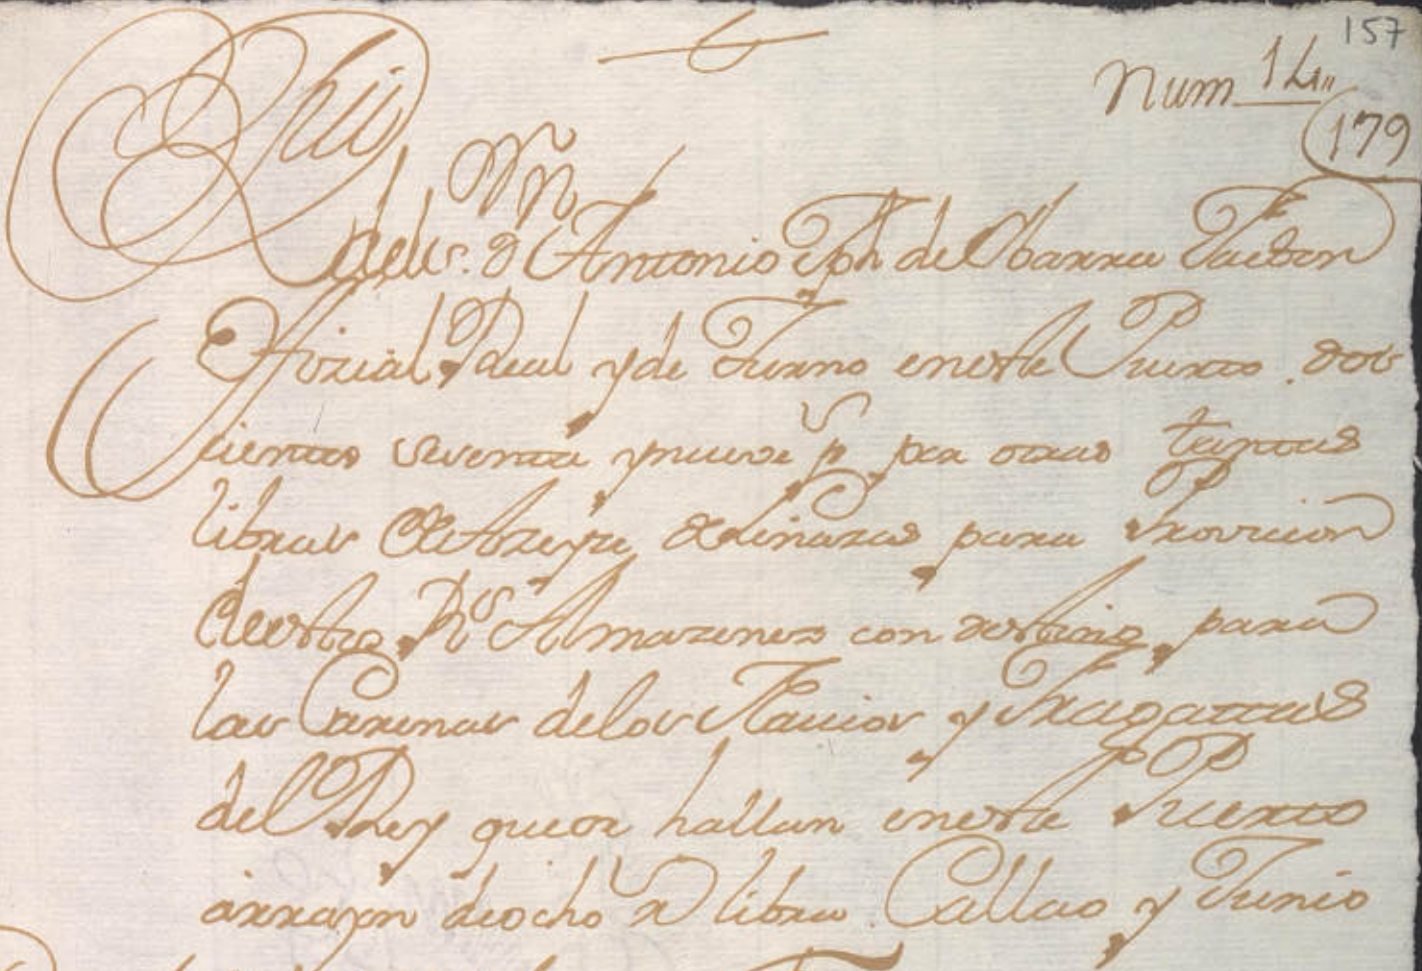 157
Num 14
179
Sr. Dn Antonio Jph de Obarrua Factor
Ofizial Real y de Turno en este Puerto. dos
cientos setenta y nueve ps por otras tantas
libras de Azeyte de Linazas para Provicion
de estos Rs Almazenes con destino para
las Carenas de los Nauios y Fragattas
del Rey que se hallan en este Puerto
a rrazon de ocho rs libra. Callao y Junio